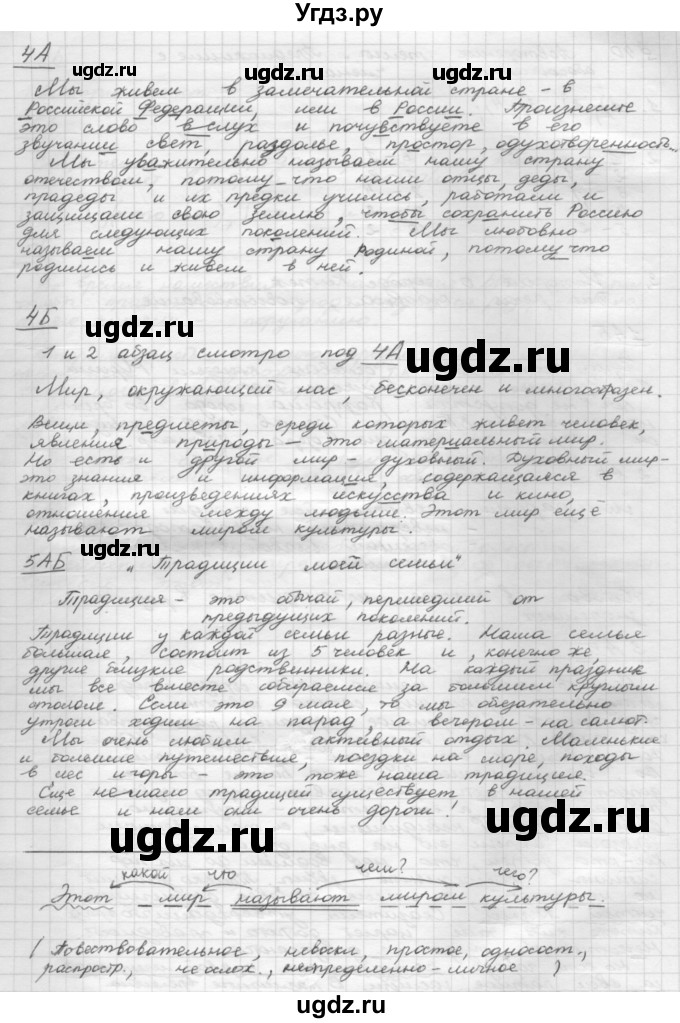 Угдз.ру
4А
Мы живем в замечательной стране - в
Российской Федерации, или в России. Произнесите
это слово в слух и почувствуете в его
звучании свет, раздолье, простор, одухотворенность...
Мы уважительно называем нашу страну
отечеством, потому что наши отцы, деды,
прадеды и их предки учились, работали и
защищали свою землю, чтобы сохранить Россию
для следующих поколений. Мы любовно
называем нашу страну Родиной, потому что
родились и живем в ней.
4Б
1 и 2 абзац смотро под 4А
Мир, окружающий нас, бесконечен и многообразен.
Вещи, предметы, среди которых живет человек,
явления природы - это материальный мир.
Но есть и другой мир - духовный. Духовный мир-
это знания и информация, содержащаяся в
книгах, произведениях искусства и кино,
отношения между людьми. Этот мир ещё
называют миром культуры.
5АБ „Традиции моей семьи“
Традиция - это обычай, перешедший от
предыдущих поколений.
Традиции у каждой семьи разные. Наша семья
большая, состоит из 5 человек и, конечно же
другие близкие родственники. На каждый праздник
мы все вместе собираемся за большим круглым
столом. Если это 9 мая, то мы обязательно
утром ходим на парад, а вечером - на салют.
Мы очень любим активный отдых. Маленькие
и большие путешествия, поездки на море, походы
в лес и горы - это тоже наша традиция.
Еще не мало традиций существует в нашей
семье и нам они очень дороги!
какой что чем? чего?
Этот мир называют миром культуры.
(Повествовательное, невоскл, простое, односост.,
распростр., не ослож., неопределенно-личное)
ugdz.ru
ugdz.ru
ugdz.ru
ugdz.ru
ugdz.ru
ugdz.ru
ugdz.ru
ugdz.ru
ugdz.ru
ugdz.ru
ugdz.ru
ugdz.ru
ugdz.ru